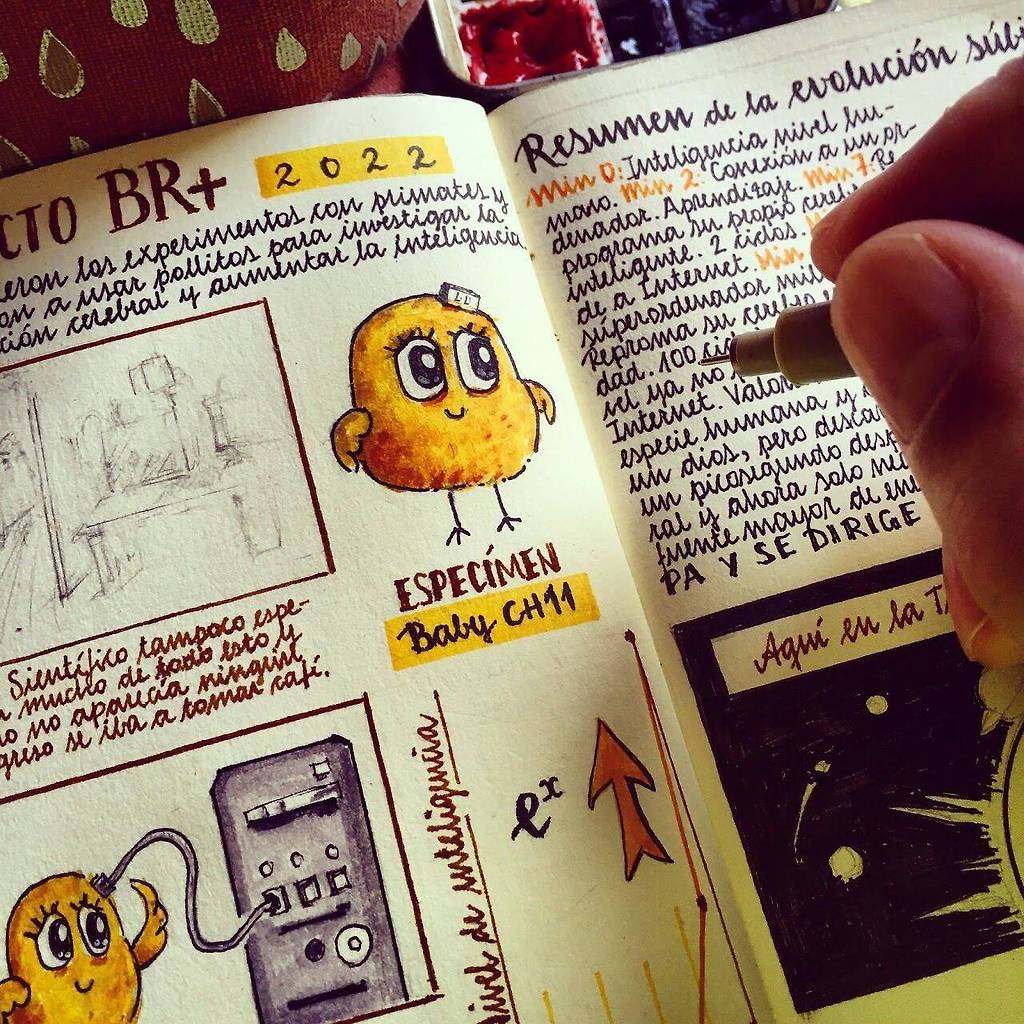 CTO BR+
2022
eron los experimentos con primates y
on a usar pollitos para investigar la
ción cerebral y aumentar la inteligencia.
ESPECÍMEN
Baby CH11
Sientífico tampoco espe-
mucho de todo esto y
no aparecía ningún
greso se iba a tomar café.
Nivel de inteligencia
eˣ
Resumen de la evolución súbi
Min 0: Inteligencia nivel hu-
mano. Min 2: Conexión a un or-
denador. Aprendizaje. Min 7: Re
programa su propio cereb
inteligente. 2 ciclos.
de a Internet. Min
superordenador mil
Reproma su cerebro
dad. 100 ci
vel ya no
Internet. Valor
especie humana y
un dios, pero descar
un picosegundo desp
ral y ahora solo
fuente mayor de ene
PA Y SE DIRIGE
Aquí en la T